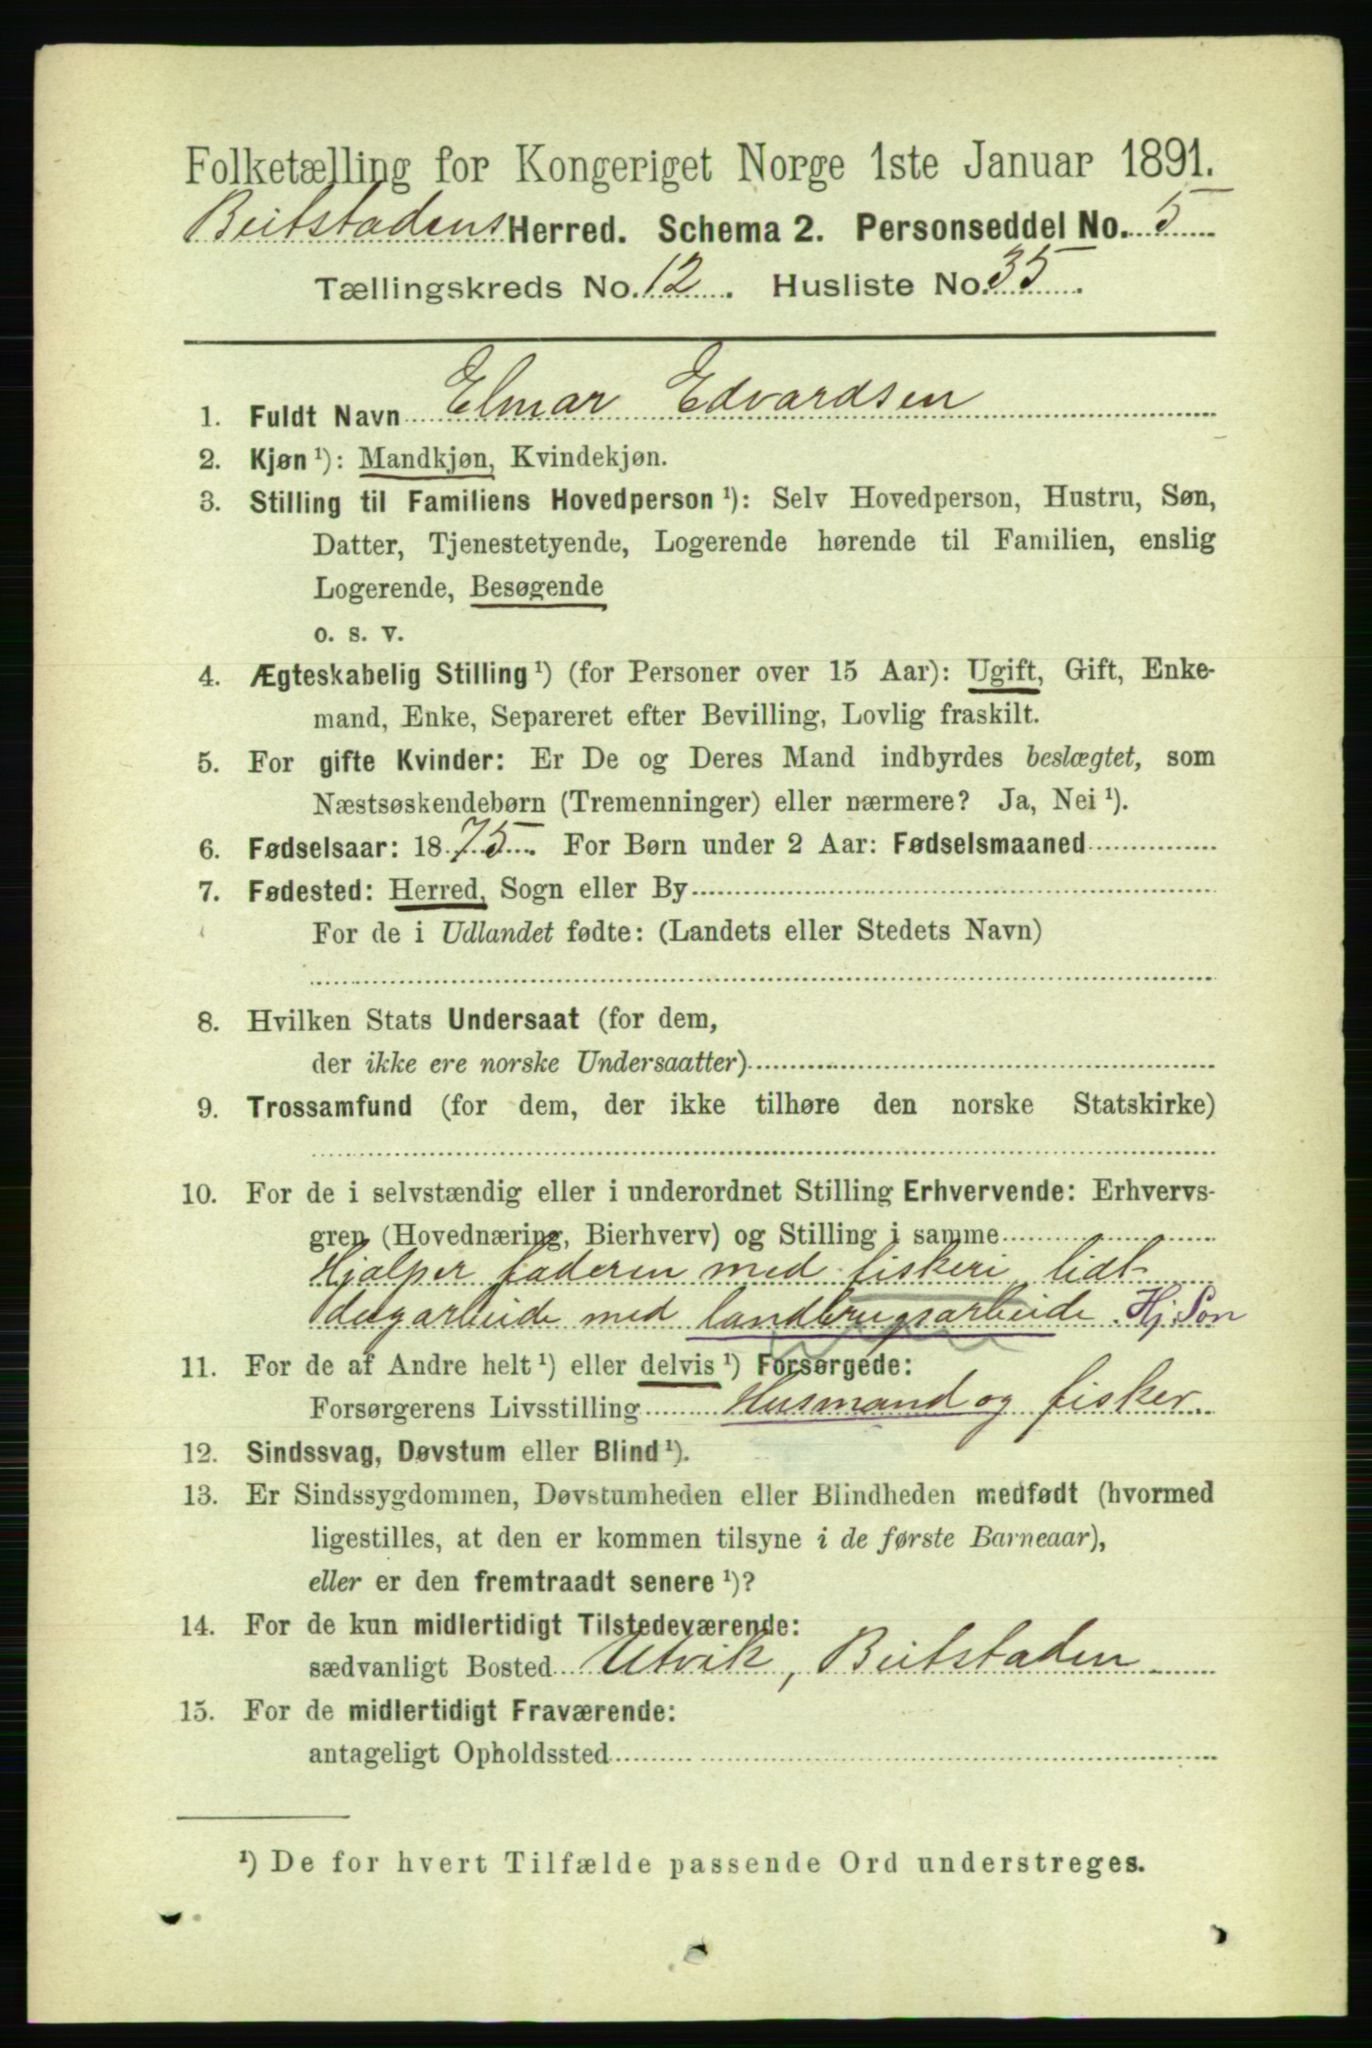 Folketælling for Kongeriget Norge 1ste Januar 1891.
Beitstadens Herred. Schema 2. Personseddel No. 5
Tællingskreds No. 12. Husliste No. 35.
1. Fuldt Navn Elmar Edvardsen
2. Kjøn ¹): Mandkjøn, Kvindekjøn.
3. Stilling til Familiens Hovedperson ¹): Selv Hovedperson, Hustru, Søn,
Datter, Tjenestetyende, Logerende hørende til Familien, enslig
Logerende, Besøgende
o. s. v.
4. Ægteskabelig Stilling ¹) (for Personer over 15 Aar): Ugift, Gift, Enke-
mand, Enke, Separeret efter Bevilling, Lovlig fraskilt.
5. For gifte Kvinder: Er De og Deres Mand indbyrdes beslægtet, som
Næstsøskendebørn (Tremenninger) eller nærmere? Ja, Nei ¹).
6. Fødselsaar: 1875. For Børn under 2 Aar: Fødselsmaaned
7. Fødested: Herred, Sogn eller By
For de i Udlandet fødte: (Landets eller Stedets Navn)
8. Hvilken Stats Undersaat (for dem,
der ikke ere norske Undersaatter)
9. Trossamfund (for dem, der ikke tilhøre den norske Statskirke)
10. For de i selvstændig eller i underordnet Stilling Erhvervende: Erhvervs-
gren (Hovednæring, Bierhverv) og Stilling i samme
Hjælper faderen med fiskeri, lidt
dagarbeide med landbrugsarbeide. Hj. Søn
11. For de af Andre helt ¹) eller delvis ¹) Forsørgede:
Forsørgerens Livsstilling Husmand og fisker.
12. Sindssvag, Døvstum eller Blind ¹).
13. Er Sindssygdommen, Døvstumheden eller Blindheden medfødt (hvormed
ligestilles, at den er kommen tilsyne i de første Barneaar),
eller er den fremtraadt senere ¹)?
14. For de kun midlertidigt Tilstedeværende:
sædvanligt Bosted Utvik, Beitstaden
15. For de midlertidigt Fraværende:
antageligt Opholdssted
¹) De for hvert Tilfælde passende Ord understreges.